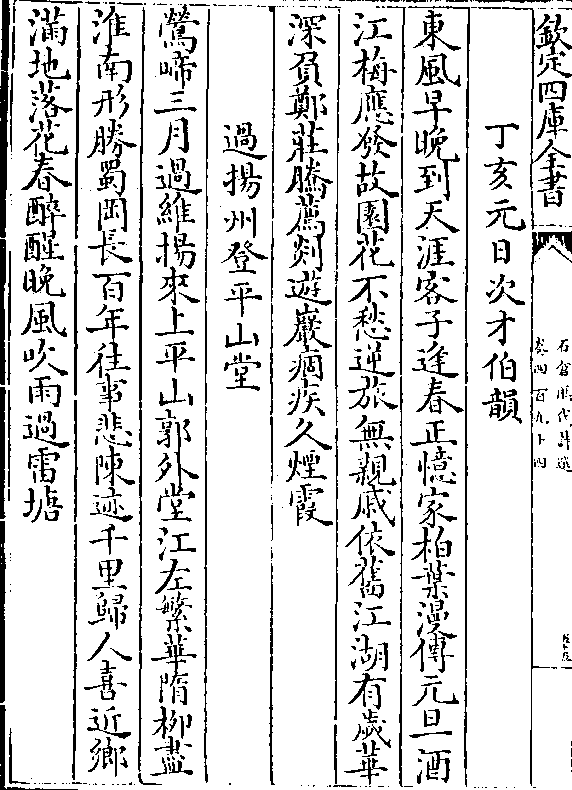 欽定四庫全書
石倉歷代詩選
卷四百九十四
丁亥元日次才伯韻
東風早晚到天涯客子逢春正憶家柏葉漫傳元旦酒
江梅應發故園花不愁逆旅無親戚依舊江湖有歲華
深負鄭莊騰薦剡遊巖痼疾久煙霞
過揚州登平山堂
鶯啼三月過維揚來上平山郭外堂江左繁華隋柳盡
淮南形勝蜀岡長百年往事悲陳迹千里歸人喜近鄉
滿地落花春醉醒晚風吹雨過雷塘